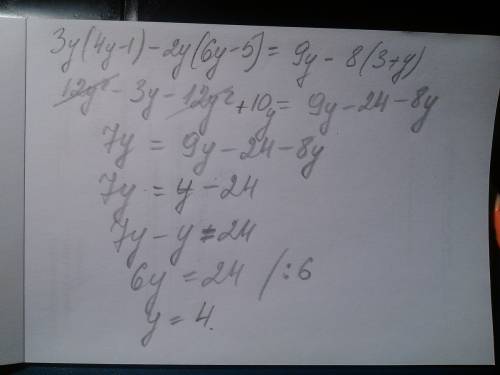 3y(4y-1)-2y(6y-5)=9y-8(3+y)
12y²-3y-12y²+10y=9y-24-8y
7y=9y-24-8y
7y=y-24
7y-y=24
6y=24 /:6
y=4.